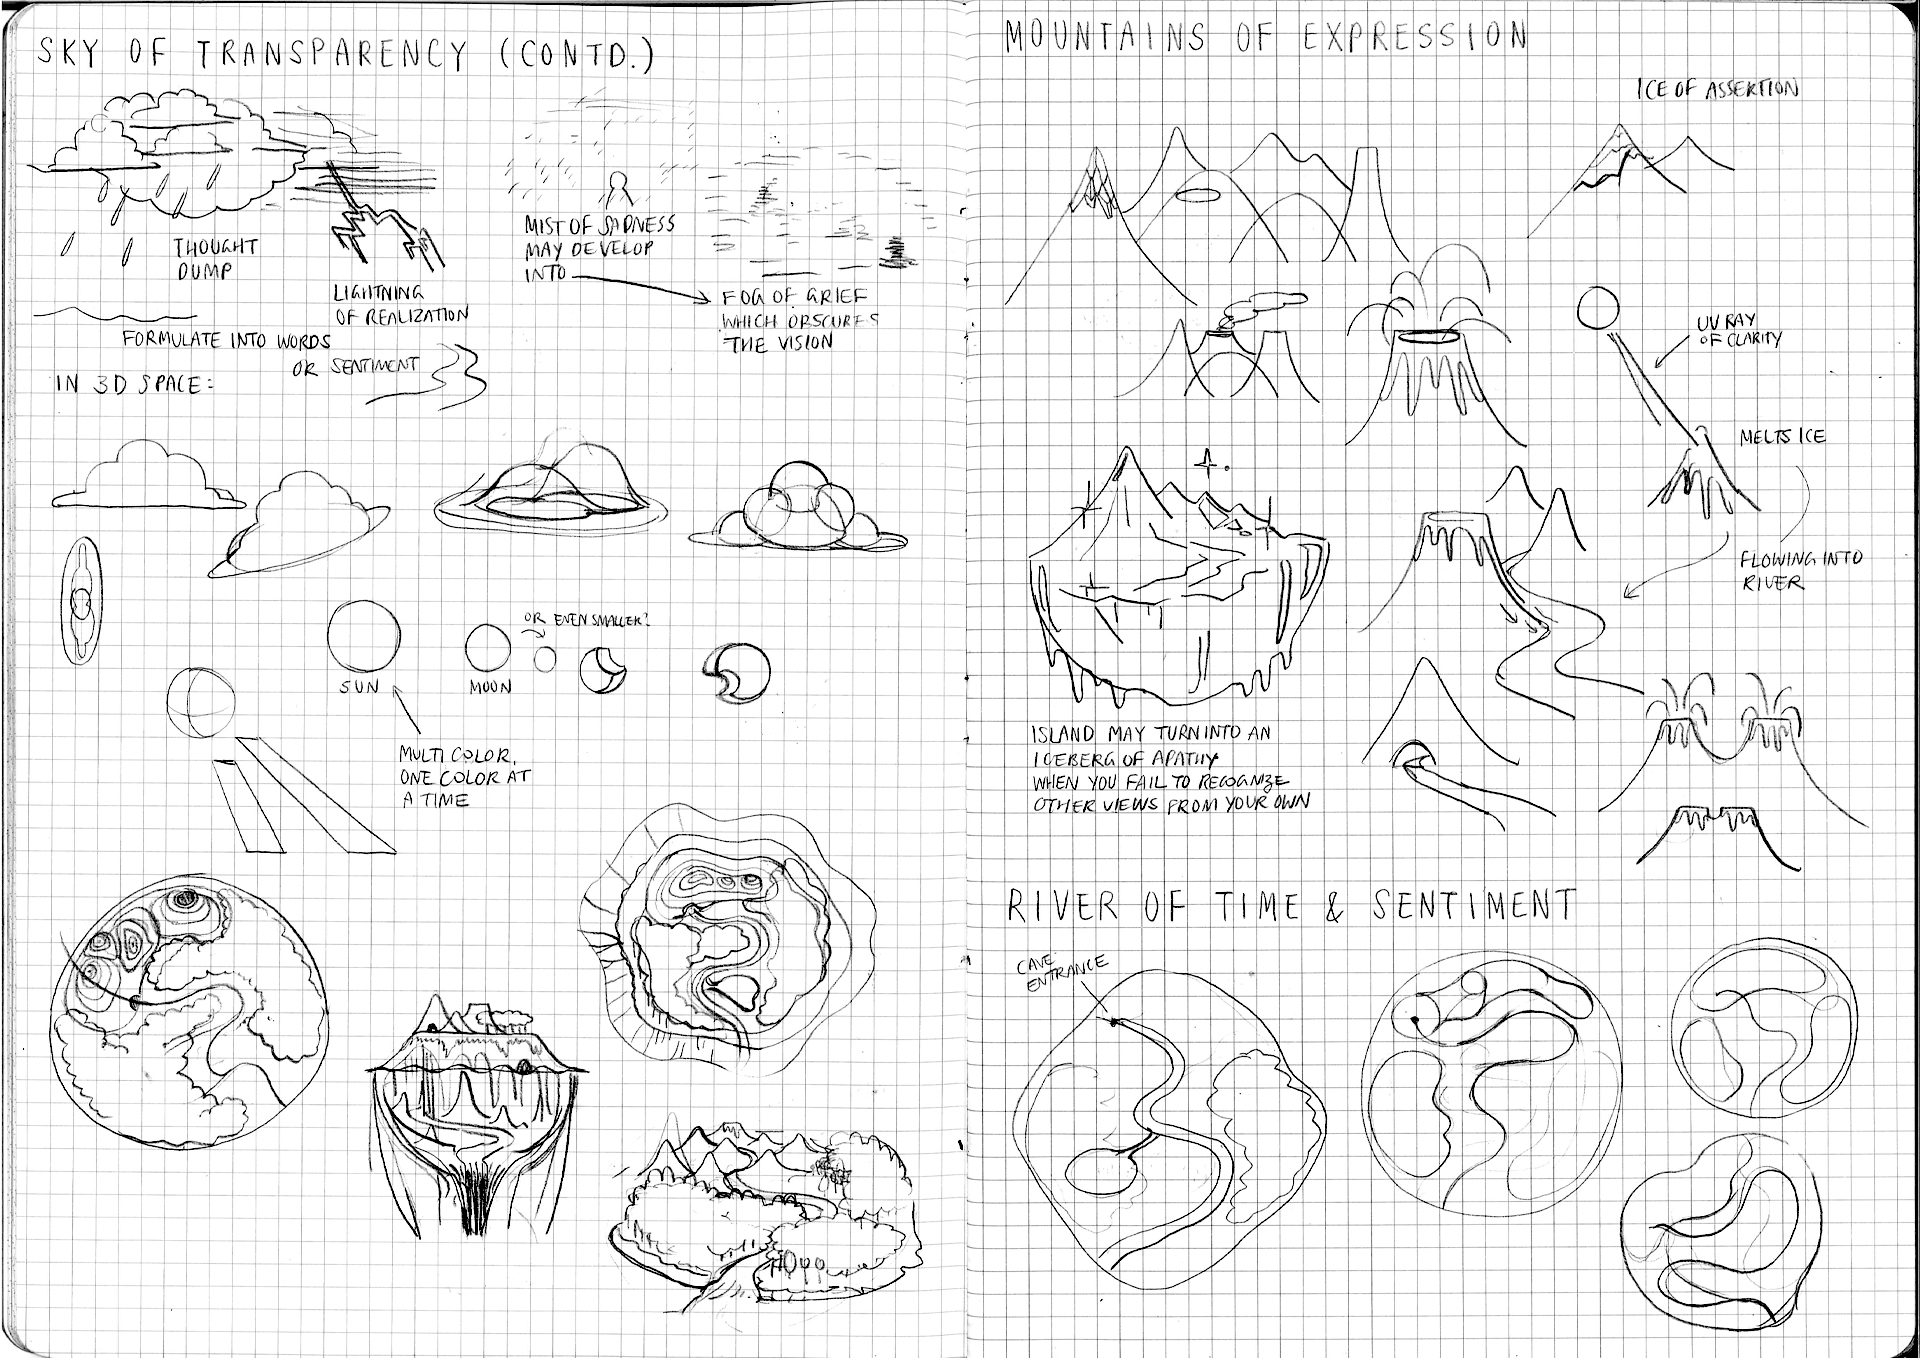 SKY OF TRANSPARENCY (CONTD.)
THOUGHT
DUMP
LIGHTNING
OF REALIZATION
FORMULATE INTO WORDS
OR SENTIMENT
MIST OF SADNESS
MAY DEVELOP
INTO
FOG OF GRIEF
WHICH OBSCURES
THE VISION
IN 3D SPACE:
SUN
MOON
OR EVEN SMALLER?
MULTI COLOR,
ONE COLOR AT
A TIME
MOUNTAINS OF EXPRESSION
ICE OF ASSERTION
UV RAY
OF CLARITY
MELTS ICE
FLOWING INTO
RIVER
ISLAND MAY TURN INTO AN
ICEBERG OF APATHY
WHEN YOU FAIL TO RECOGNIZE
OTHER VIEWS FROM YOUR OWN
RIVER OF TIME & SENTIMENT
CAVE
ENTRANCE